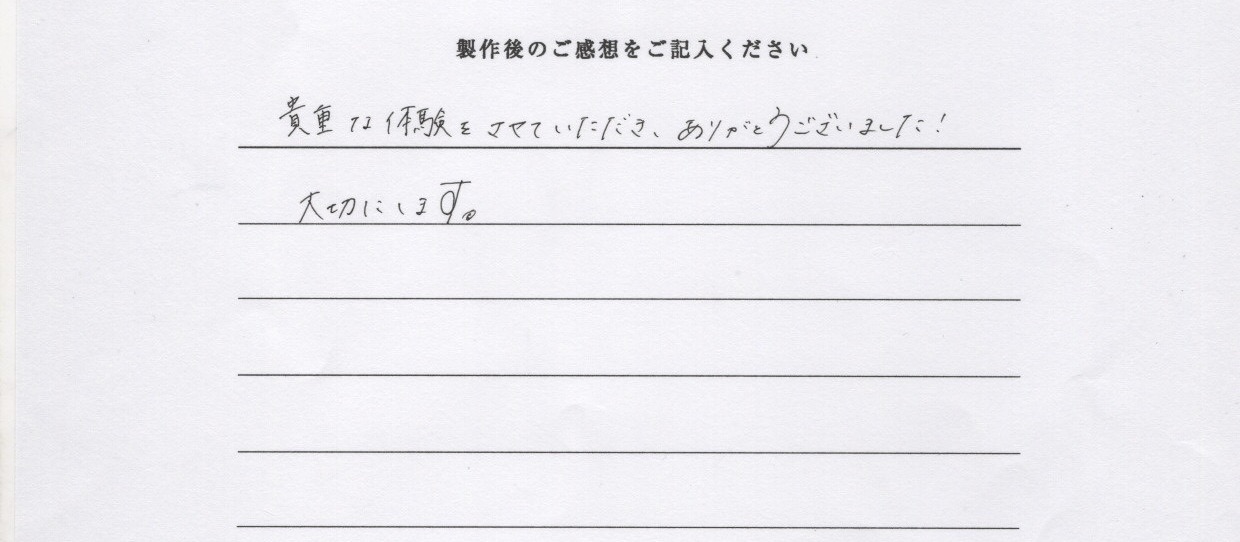 製作後のご感想をご記入ください
貴重な体験をさせていただき、ありがとうございました！
大切にします。